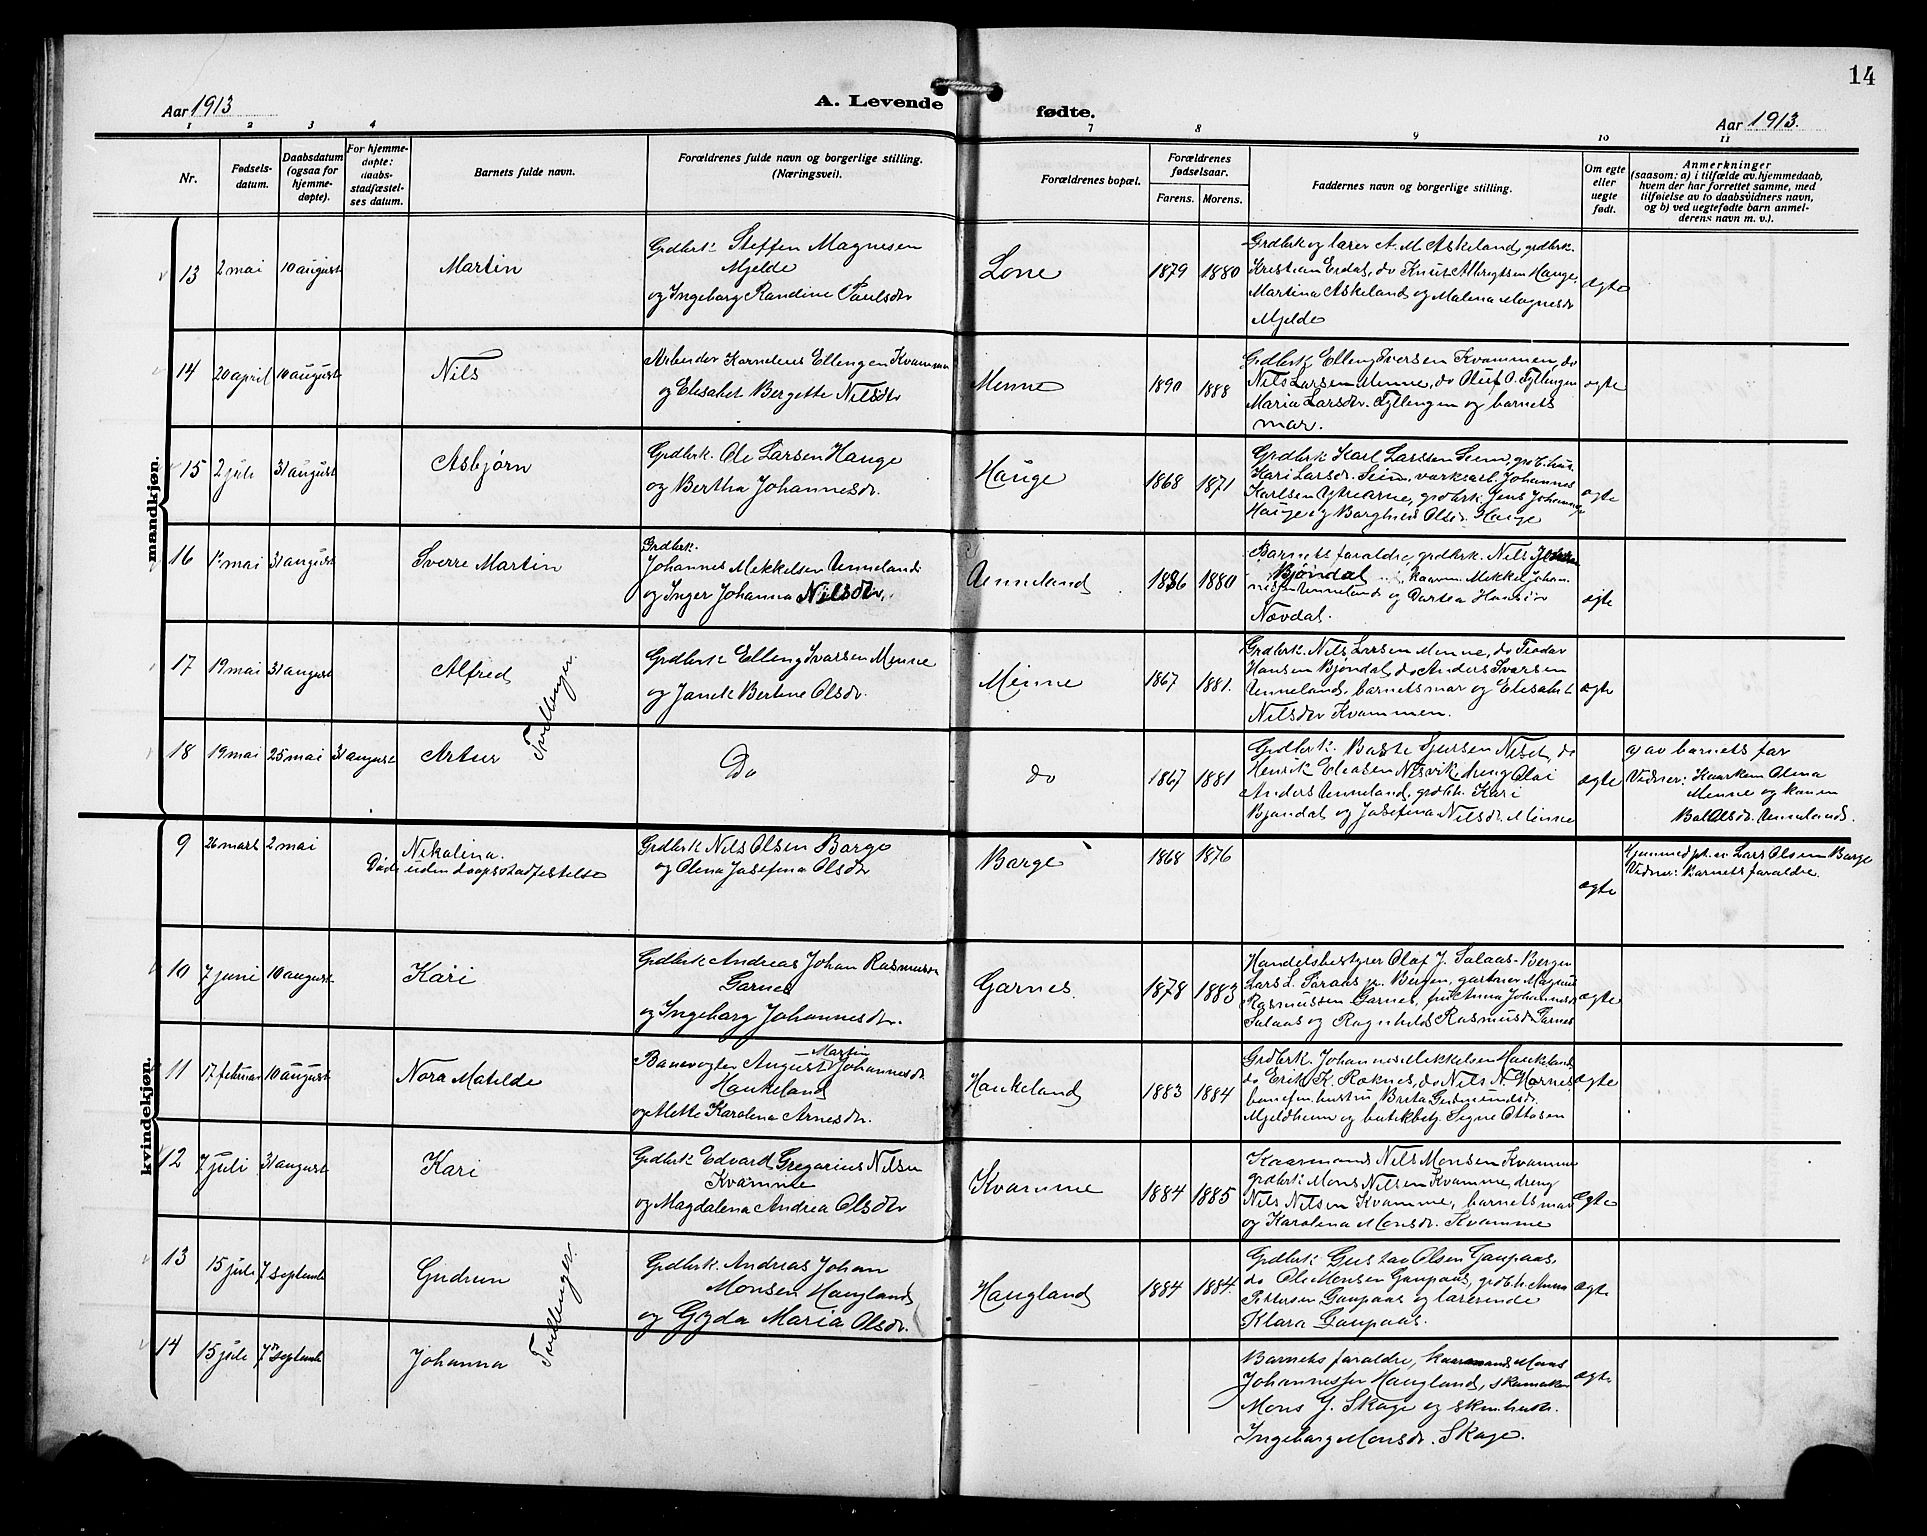 14
Aar 1913
A. Levende
fødte.
Aar 1913.
1 2 3 4 7 8 9 10 11
Nr.
Fødsels-
datum.
Daabsdatum
(ogsaa for
hjemme-
døpte).
For hjemme-
døpte:
daabs-
stadfæstel-
ses datum.
Barnets fulde navn.
Forældrenes fulde navn og borgerlige stilling.
(Næringsvei).
Forældrenes bopæl.
Forældrenes
fødselsaar.
Farens. Morens.
Faddernes navn og borgerlige stilling.
Om egte
eller
uegte
født.
Anmerkninger
(saasom: a) i tilfælde av hjemmedaab,
hvem der har forrettet samme, med
tilføielse av to daabsvidners navn,
og b) ved uegtefødte barn anmel-
derens navn m. v.).
mandkjøn.
13 2 mai 10 august Martin
Grdbrk Steffen Magnesen
Mjelde
og Ingeborg Randine Paulsdtr
Lone 1879 1880
Grdbrk og lærer A. M. Askeland, grdbrk.
Kristian Erdal, do Knut Albregtsen Hauge,
Martina Askeland og Malena Magnesdr
Mjelde
ægte
14 20 april 10 august Nils
Arbeider Kornelius Ellengen Kvamme
og Elisabet Bergette Nilsdtr
Menne 1890 1888
Grdbrk Elleng Iversen Kvammen, do
Nils Larsen Menne, do Oluf O. Tyllengen
Maria Larsdtr. Tyllengen og barnets
mor.
ægte
15 2 juli 31 august Asbjørn
Grdbrk. Ole Larsen Hauge
og Bertha Johannesdr.
Hauge 1868 1871
Grdbrk Karl Larssen Seim, grdb.hus.
Kari Larsdr. Seim, verksarb. Johannes
Karlsen Ytrearne, grdbrk Jens Johannes
Hauge og Borghild Olsdr. Hauge
ægte
16 1 mai 31 august Sverre Martin
Grdbrk.
Johannes Mekkelsen Unneland
og Inger Johanna Nilsdtr.
Unneland 1886 1880
Barnets foraldre, grdbrk. Nils
Bjöndal kaarm. Mekkel Johan-
nesen Unneland og Dortea Hansdtr
Nævdal.
ægte
17 19 mai 31 august Alfred
Tvillinger.
Grdbrk Elleng Ivarsen Menne
og Janik Bertine Olsdr.
Menne 1867 1881.
Grdbrk. Nils Larsen Menne, do Teodor
Hansen Bjöndal, do Anders Ivarsen
Unneland, barnets mor og Elisabet
Nilsdtr Kvammen.
ægte
18 19 mai 25 mai 31 august Artur
Do
do 1867 1881
Grdbrk. Baste Sjursen Neset, do
Henrik Eleasen Nesvik, ung Olai
Anders Unneland, grdbh. Kari
Bjøndal og Josefina Nilsdr. Menne
ægte
a) av barnets far
Vidner: Kaarkem Olina
Menne og konen
Bol Olsdr. Unneland.
kvindekjøn.
9 26 mars 2 mai Nikolina.
Død uden daapsstadfestelse
Grdbrk Nils Olsen Borge
og Olena Josefina Olsdtr
Borge 1868 1876
ægte
Hjemmedpt. av Lars Olsen Borge
Vidner: Barnets foraldre.
10 7 juni 10 august Kari
Grdbrk Andreas Johan Rasmussen
Garnes
og Ingeborg Johannesdr.
Garnes. 1878 1883
Handelsbestyrer Olaf J. Salaas- Bergen
Lars L. Toraas jr. Bergen, gartner Magnus
Rasmussen Garnes, frk Anna Johannesdr
Salaas og Ragnhild Rasmusdr Garnes
ægte
11 17 februar 10 august Nora Matilde
Banevogter August Martin Johannesdr
Haukeland
og Mette Karolena Arnesdtr.
Haukeland 1883 1884
Grdbrk. Johannes Mekkelsen Haukeland
do Erik K. Roknes, do Nils N. Hornes,
banefm. hustru Brita Gudmundsdr.
Mjeldheim og butikbetj. Signe Ottosen
ægte
12 7 juli 31 august Kari
Grdbrk Edvard Gregarius Nilsen
Kvamme
og Magdalena Andrea Olsdtr
Kvamme 1884 1885
Kaarmand Nils Monsen Kvamme
grdbrk Mons Nilsen Kvamme, dreng
Nils Nilsen Kvamme, barnets mor
og Karolena Monsdr. Kvamme
Ægte
13 15 juli 7 septembr Gudrun
Tvillinger.
Grdbrk. Andreas Johan
Monsen Haugland
og Gyda Maria Olsdr.
Haugland 1884 1884.
Grdbrk Gustav Olsen Gaupaas,
do Ole Monsen Gaupaas, grdbh. Anna
Pettersen Gaupaas og lærerinde
Klara Gaupaas.
ægte
14 15 juli 7 septembr Johanna
Barnets foraldre, kaarmand Mons
Johannessen Haugland, skomaker
Mons J. Skage og skm.hustr.
Ingeborg Monsdr. Skage.
ægte